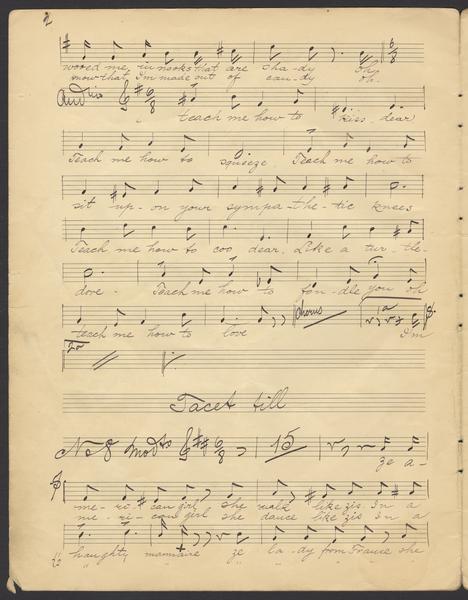 2
wooed me, in nooks that are sha-dy Oh
know that I'm made out of can-dy oh.
6/8
teach me how to kiss, dear
Teach me how to squeeze Teach me how to
sit up-on your sympa-the-tic knees
Teach me how to coo dear. Like a tur-tle-
dove. Teach me how to fon-dle you oh
Chorus 1a
teach me how to love I'm
2a
Tacet till
No 8 Modto 6/8 15
ze a-
me-ri-can girl she walk like zis In a
me-ri-can girl she dance like zis In a
haughty manniare ze la-dy from France she